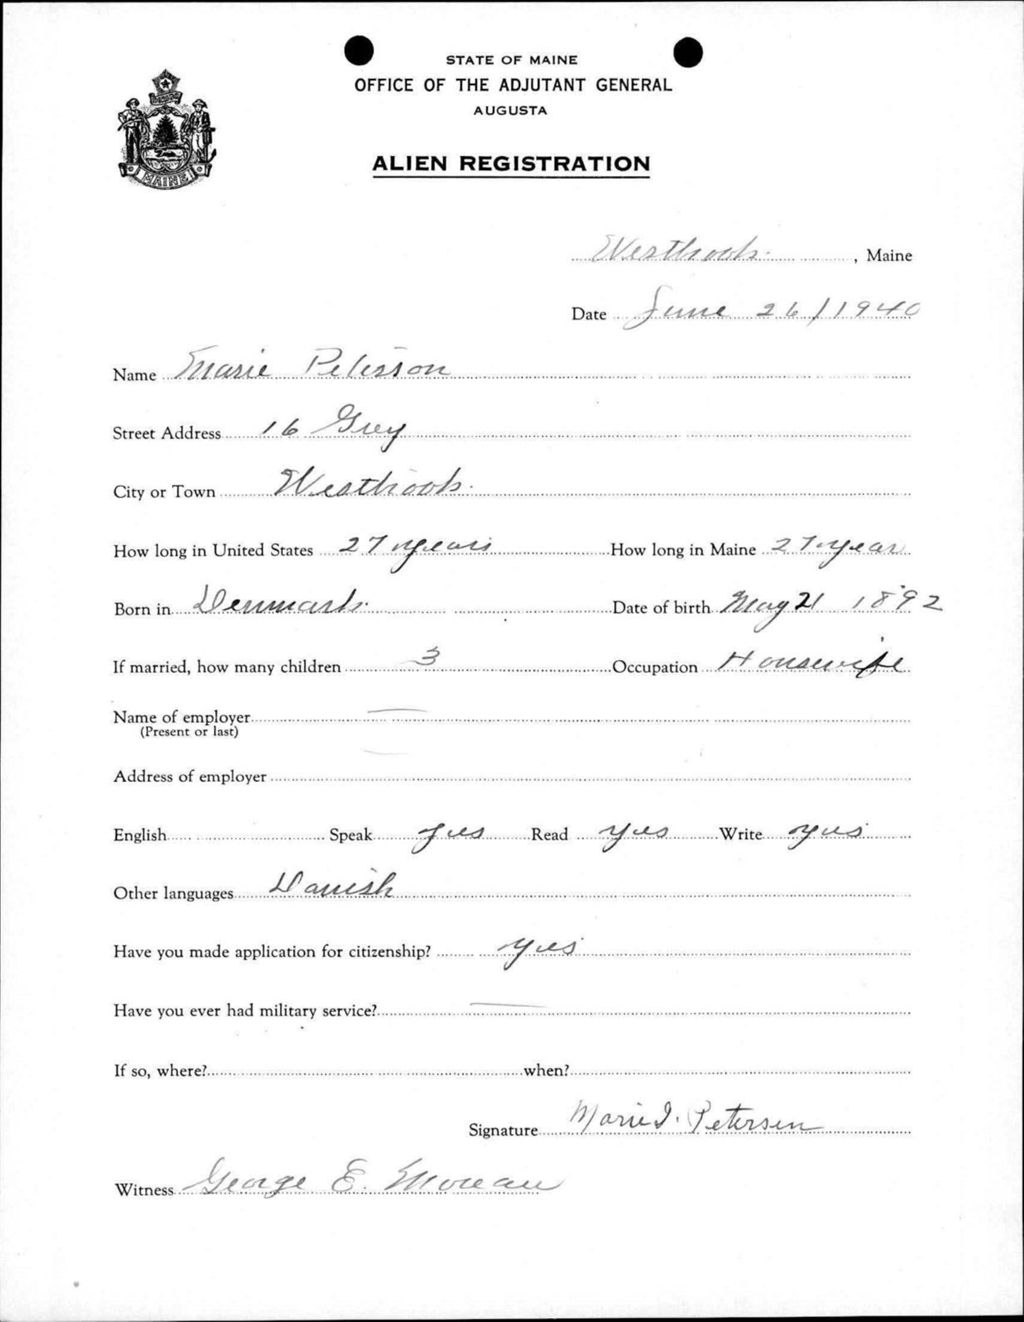 STATE OF MAINE
OFFICE OF THE ADJUTANT GENERAL
AUGUSTA
ALIEN REGISTRATION
MAINE
Westbrook, Maine
Date June 26/1940
Name Marie Peterson
Street Address 16 Grey
City or Town Westbrook
How long in United States 27 years How long in Maine 27 year
Born in Denmark Date of birth May 21 1892
If married, how many children 3 Occupation Housewife
Name of employer —
(Present or last)
Address of employer
English Speak yes Read yes Write yes
Other languages Danish
Have you made application for citizenship? yes
Have you ever had military service? —
If so, where? when?
Signature Marie I. Petersen
Witness George E. Moreau